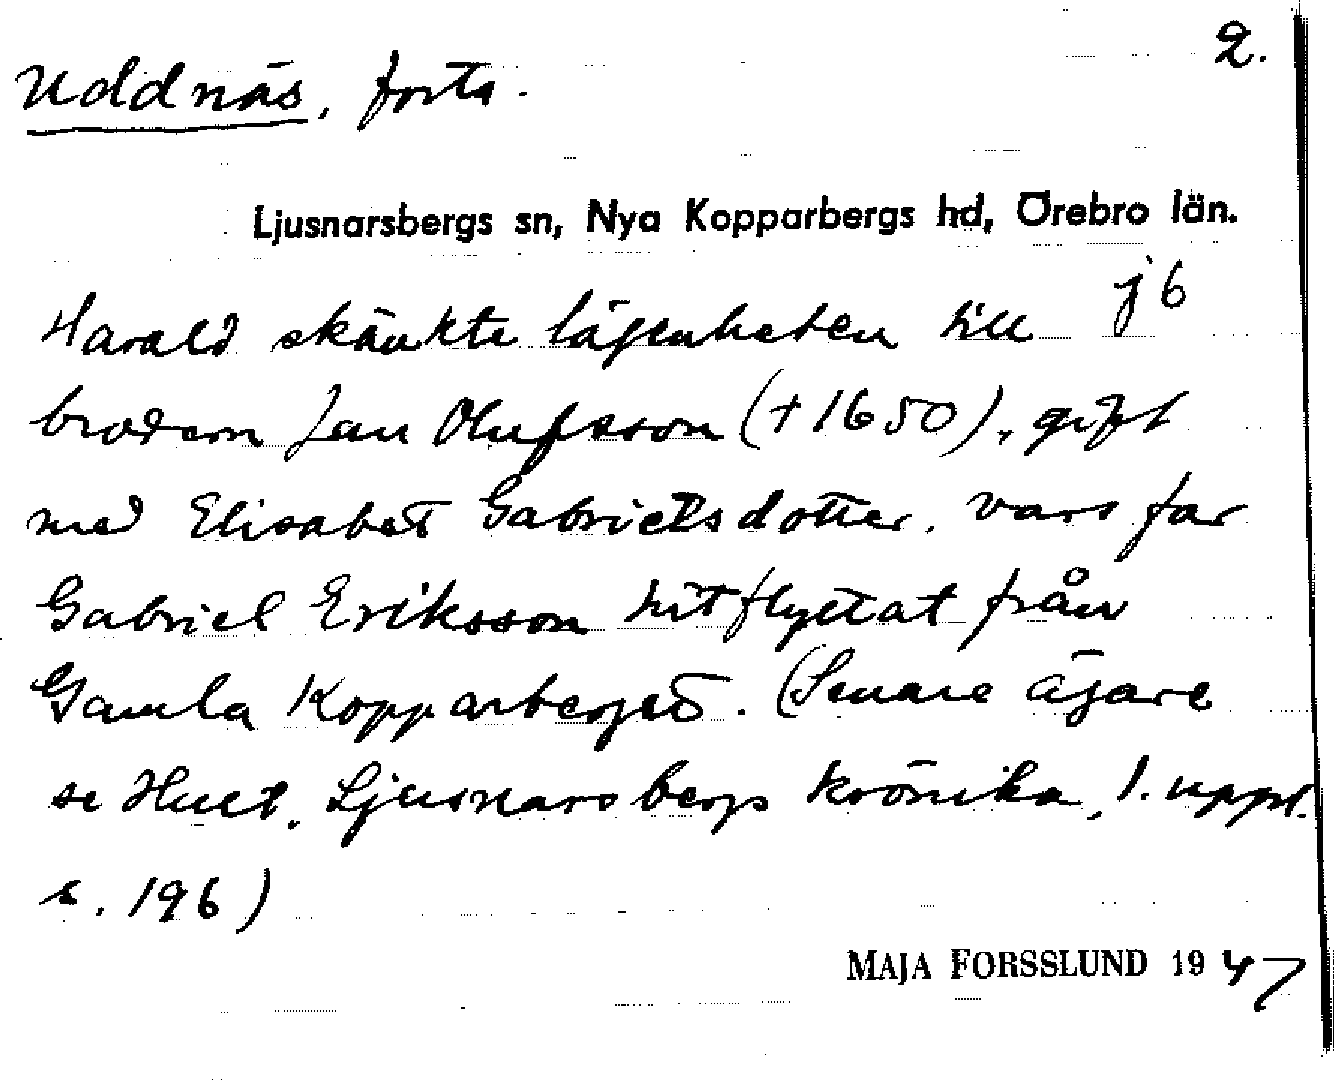 2.
Uddnäs, forts.
Ljusnarsbergs sn, Nya Kopparbergs hd, Örebro län.
j 6
Harald skänkte lägenheten till
brodern Jan Olufsson († 1650), gift
med Elisabet Gabrielsdotter, vars far
Gabriel Eriksson hitflyttat från
Gamla Kopparberget. (Senare ägare
se Hult, Ljusnarsbergs krönika, 1. uppl.
s. 196)
MAJA FORSSLUND 1947